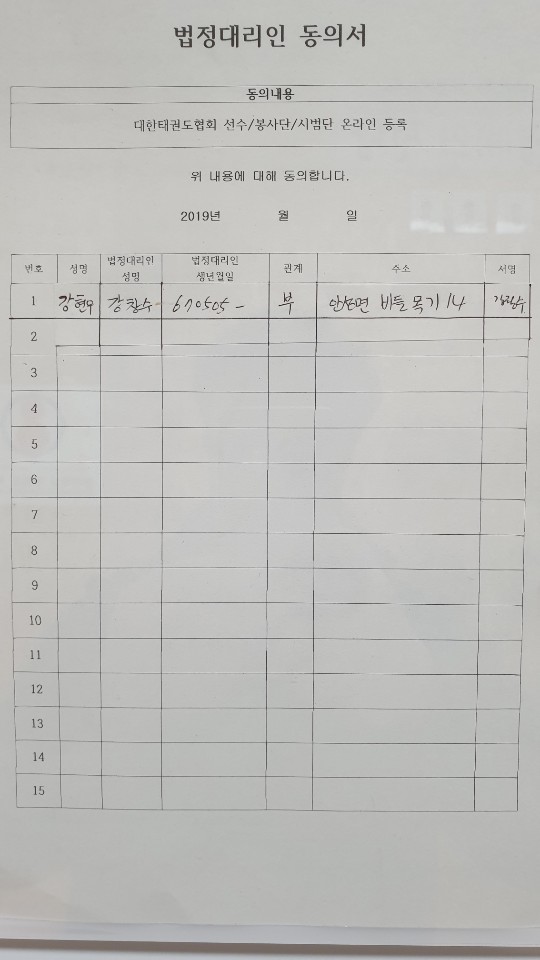 법정대리인 동의서
동의내용
대한태권도협회 선수/봉사단/시범단 온라인 등록
위 내용에 대해 동의합니다.
2019년 월 일
번호 성명 법정대리인 성명 법정대리인 생년월일 관계 주소 서명
1 강현우 강창수 670505- 부 비들목기 14
2
3
4
5
6
7
8
9
10
11
12
13
14
15